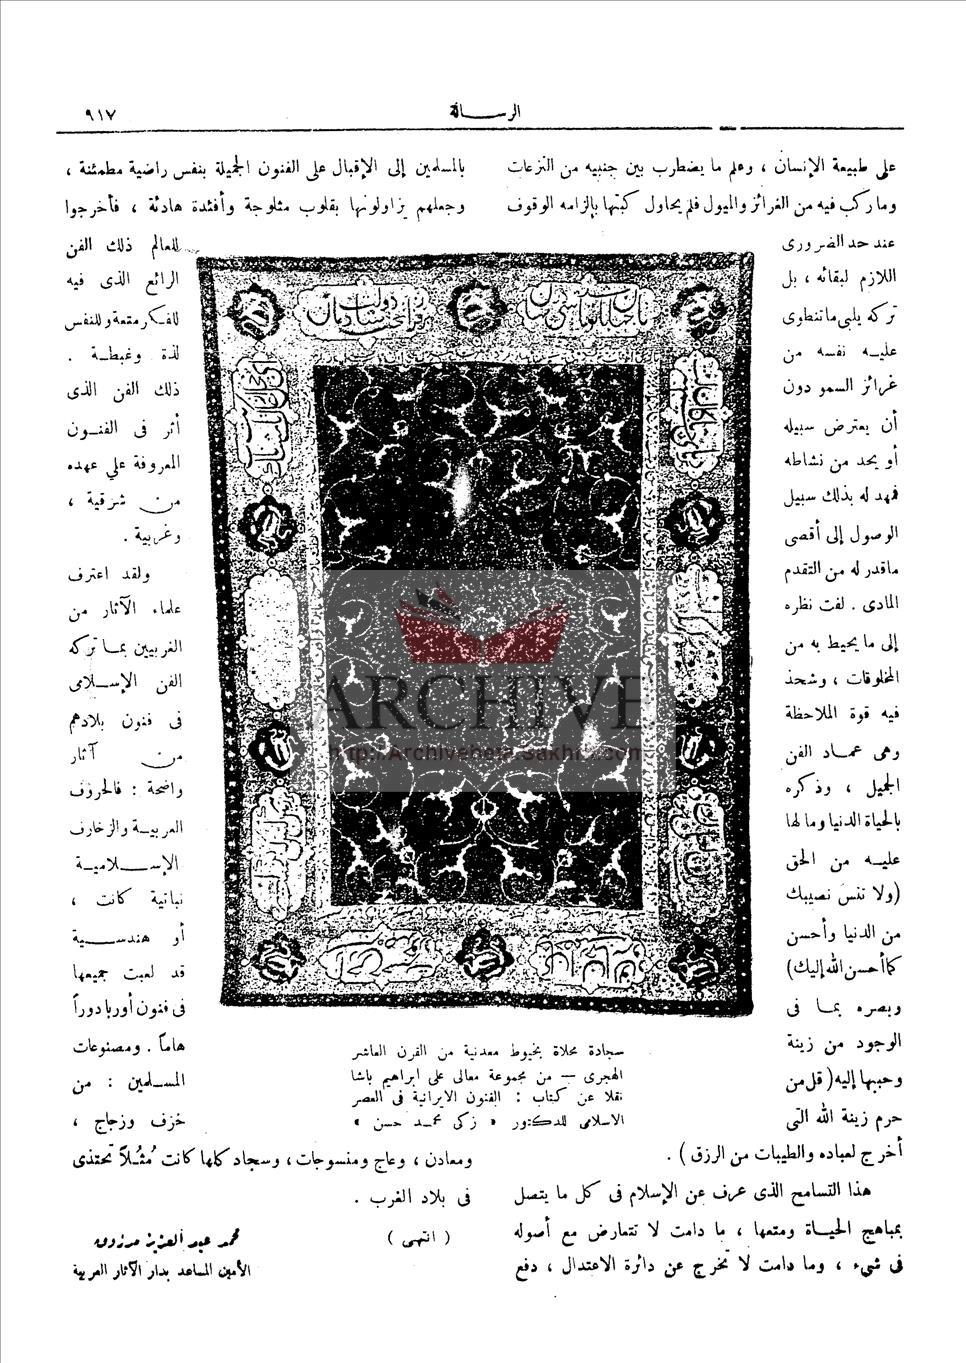 الرسالة
٩١٧
على طبيعة الإنسان ، وعلم ما يضطرب بين جنبيه من النزعات
وما ركب فيه من الغرائز والميول فلم يحاول كبتها بإلزامه الوقوف
عند حد الضرورى
اللازم لبقائه ، بل
تركه يلبى ما تنطوى
عليه نفسه من
غرائز السمو دون
أن يعترض سبيله
أو يحد من نشاطه
فمهد له بذلك سبيل
الوصول إلى أقصى
ما قدر له من التقدم
المادى . لفت نظره
إلى ما يحيط به من
المخلوقات ، وشحذ
فيه قوة الملاحظة
وهى عماد الفن
الجميل ، وذكره
بالحياة الدنيا وما لها
عليه من الحق
(ولا تنس نصيبك
من الدنيا وأحسن
كما أحسن الله إليك)
وبصره بما فى
الوجود من زينة
وحببها إليه (قل من
حرم زينة الله التى
أخرج لعباده والطيبات من الرزق) .
هذا التسامح الذى عرف عن الإسلام فى كل ما يتصل
بمباهج الحياة ومتعها ، ما دامت لا تتعارض مع أصوله
فى شىء ، وما دامت لا تخرج عن دائرة الاعتدال ، دفع
بالمسلمين إلى الإقبال على الفنون الجميلة بنفس راضية مطمئنة ،
وجعلهم يزاولونها بقلوب مثلوجة وأفئدة هادئة ، فأخرجوا
للعالم ذلك الفن
الرائع الذى فيه
للفكر متعة وللنفس
لذة وغبطة .
ذلك الفن الذى
أثر فى الفنون
المعروفة على عهده
من شرقية ،
وغربية .
ولقد اعترف
علماء الآثار من
الغربيين بما تركه
الفن الإسلامى
فى فنون بلادهم
من آثار
واضحة : فالحروف
العربية والزخارف
الإسلامية
نباتية كانت ،
أو هندسية
قد لعبت جميعها
فى فنون أوربا دوراً
هاماً . ومصنوعات
المسلمين : من
خزف وزجاج ،
ومعادن ، وعاج ومنسوجات ، وسجاد كلها كانت مُثُلاً تحتذى
فى بلاد الغرب .
( انتهى )
محمد عبد العزيز مرزوق
الأمين المساعد بدار الآثار العربية
سجادة محلاة بخيوط معدنية من القرن العاشر
الهجرى — من مجموعة معالى على ابراهيم باشا
نقلا عن كتاب : الفنون الايرانية فى العصر
الاسلامى للدكتور « زكى محمد حسن »
ARCHIVE
http://Archivebeta.Sakhrit.com